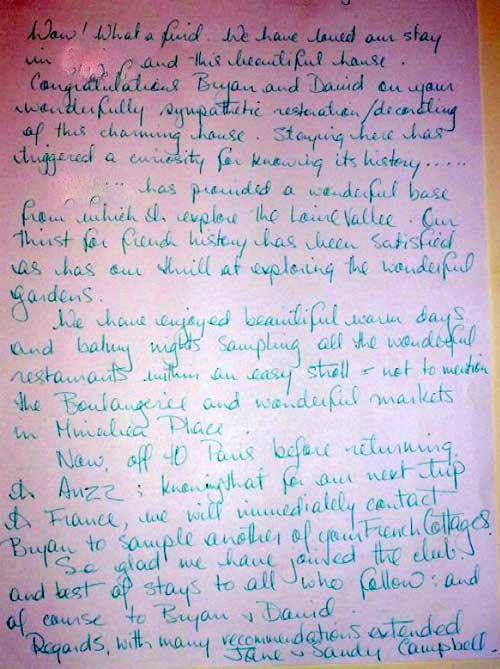 Wow! What a find. We have loved our stay
in and this beautiful house.
Congratulations Bryan and David on your
wonderfully sympathetic restoration/decorating
of this charming house. Staying here has
triggered a curiosity for knowing its history.....
... has provided a wonderful base
from which to explore the Loire Vallee. Our
thirst for french history has been satisfied
as has our thrill at exploring the wonderful
gardens.
We have enjoyed beautiful warm days
and balmy nights sampling all the wonderful
restaurants within an easy stroll - not to mention
the Boulangeries and wonderful markets
in Place.
Now, off to Paris before returning
to ANZZ; knowing that for our next trip
to France, we will immediately contact
Bryan to sample another of your French Cottages.
So glad we have joined the club
and best of stays to all who follow; and
of course to Bryan & David.
Regards, with many recommendations extended
Jane & Sandy Campbell.